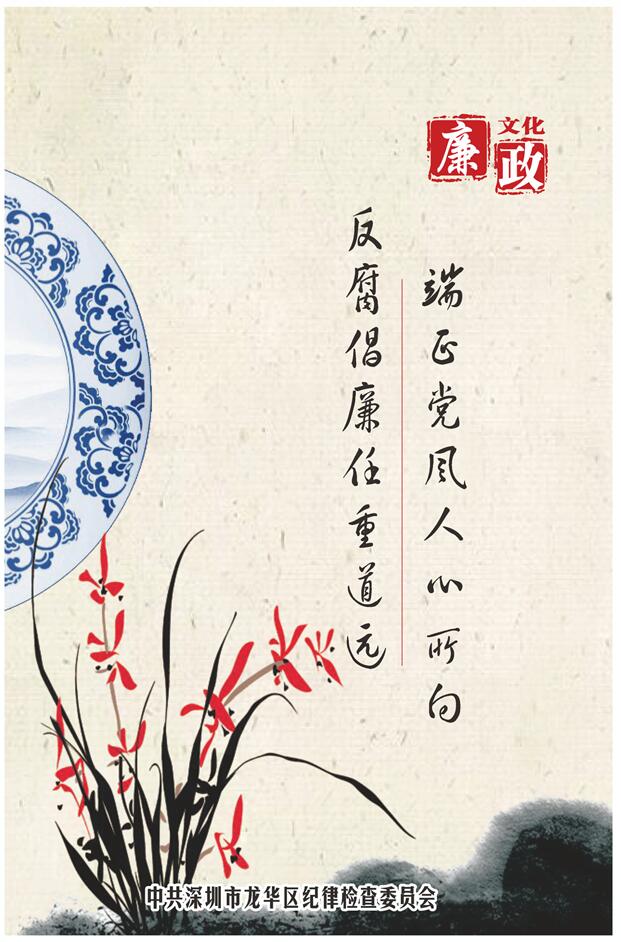 廉政
文化
端正党风人心所向
反腐倡廉任重道远
中共深圳市龙华区纪律检查委员会